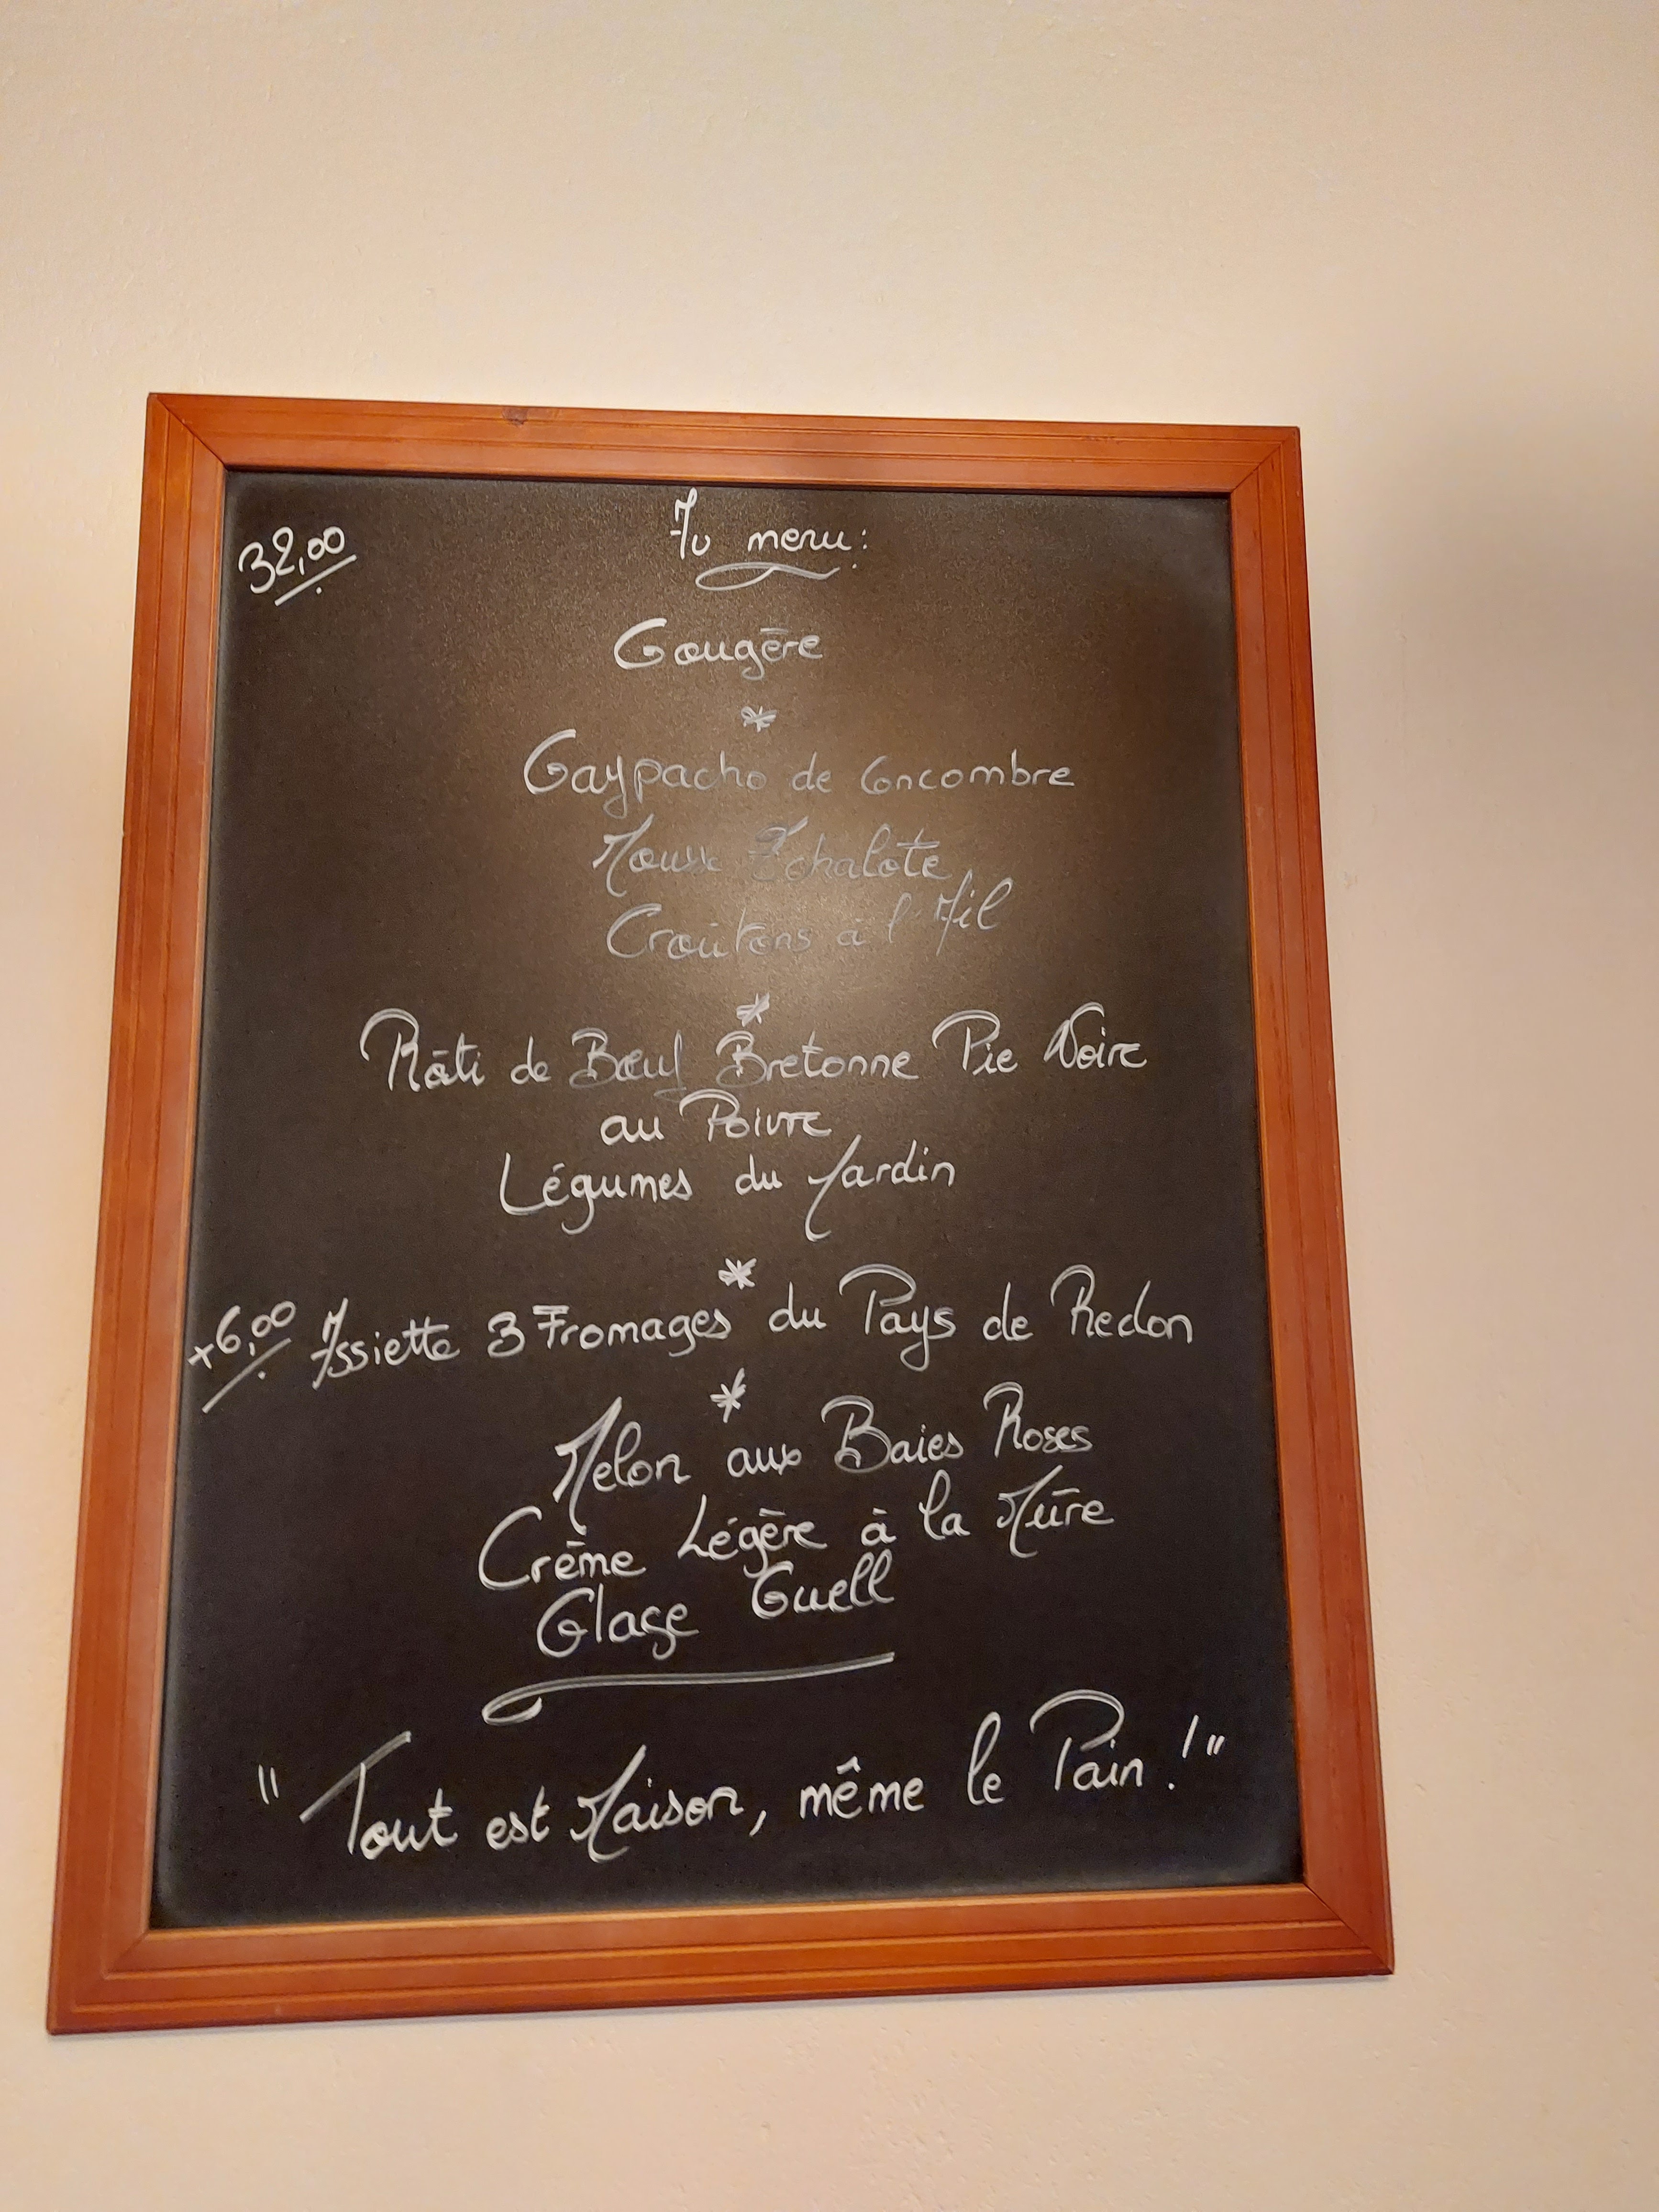 32,00
Au menu :
Gougère
*
Gazpacho de Concombre
Mousse Echalote
Croûtons à l'Ail
*
Rôti de Bœuf Bretonne Pie Noire
au Poivre
Légumes du Jardin
*
+6,00 Assiette 3 Fromages du Pays de Redon
*
Melon aux Baies Roses
Crème Légère à la Mûre
Glace Gwell
"Tout est Maison, même le Pain !"